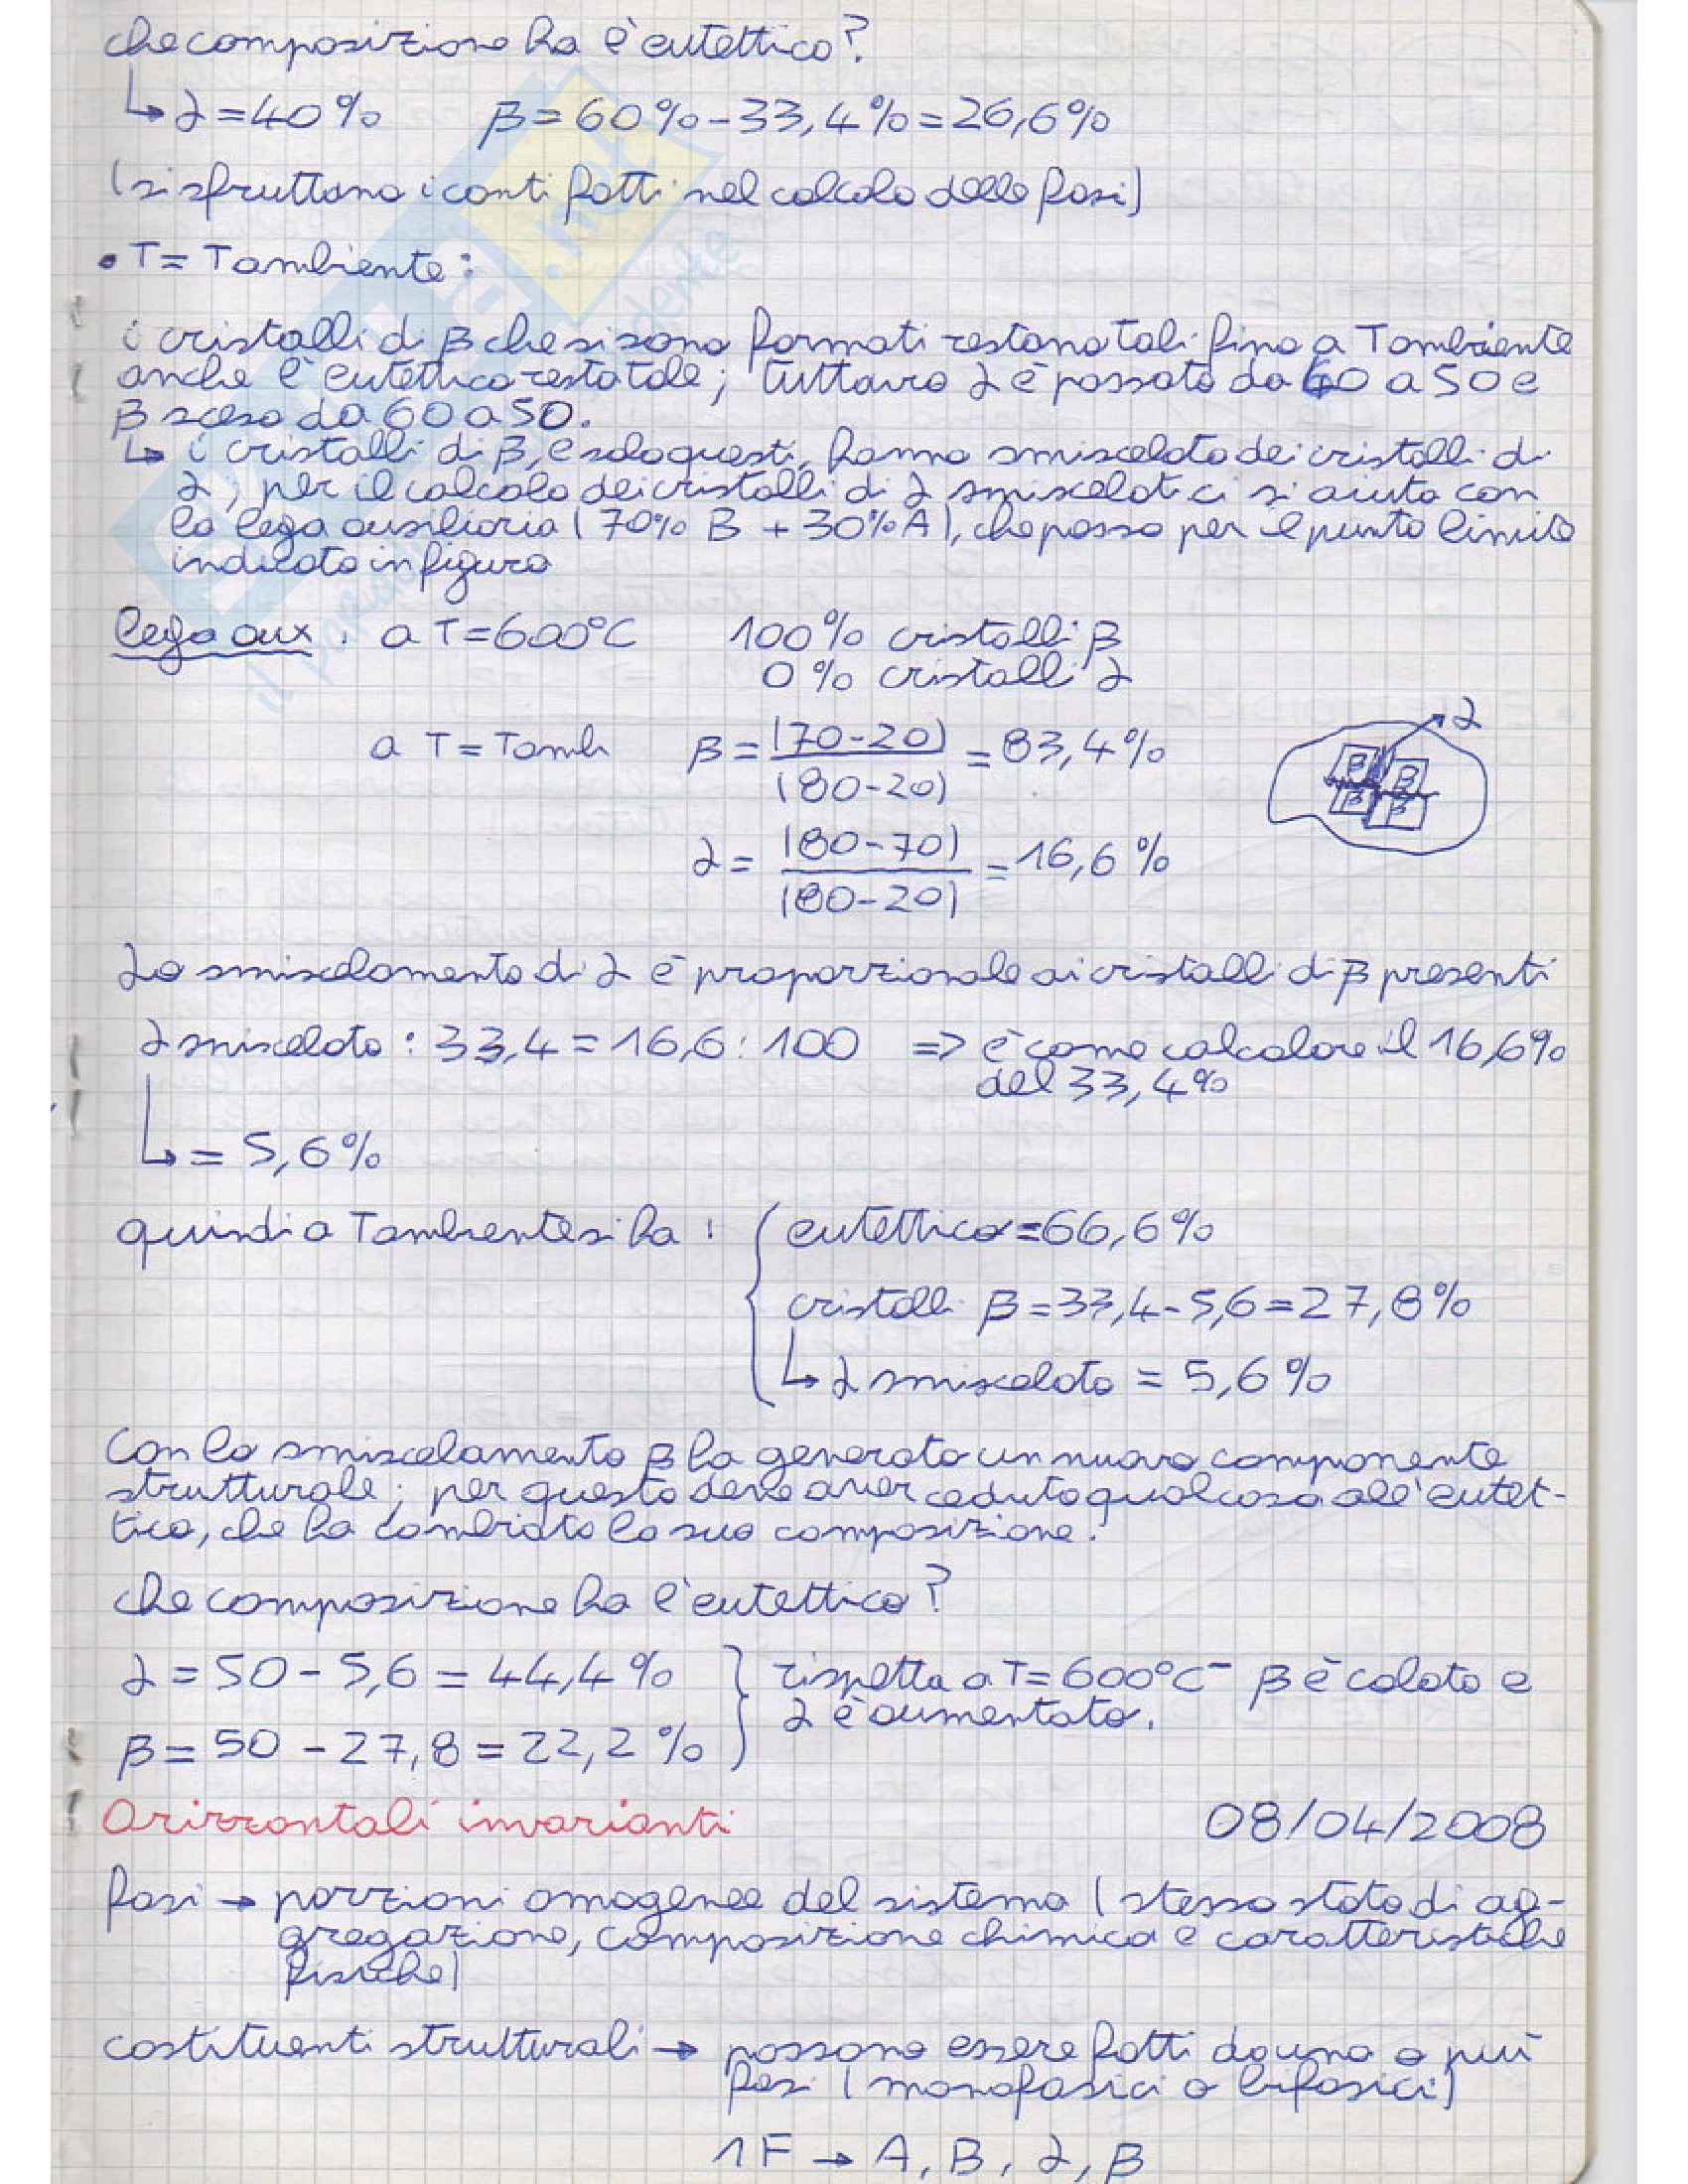 che composizione ha l'eutettico?
↳ α = 40% β = 60% - 33,4% = 26,6%
(si sfruttano i conti fatti nel calcolo delle fasi)
• T = Tambiente:
i cristalli di β che si sono formati restano tali fino a Tambiente
anche l'eutettico resta tale; tuttavia α è passato da 40 a 50 e
β sceso da 60 a 50.
↳ i cristalli di β, e solo questi, hanno smiscelato dei cristalli di
α; per il calcolo dei cristalli di α smiscelati ci si aiuta con
la lega ausiliaria (70% B + 30% A), che passa per il punto limite
indicato in figura
lega aux: a T = 600°C 100% cristalli β
0% cristalli α
a T = Tamb β = (70-20)/(80-20) = 83,4%
α
β β
β β
α = (80-70)/(80-20) = 16,6%
Lo smiscelamento di α è proporzionale ai cristalli di β presenti
α smiscelato : 33,4 = 16,6 : 100 => è come calcolare il 16,6%
del 33,4%
↳ = 5,6%
quindi a Tambiente si ha: { eutettico = 66,6%
cristalli β = 33,4 - 5,6 = 27,8%
↳ α smiscelato = 5,6%
Con lo smiscelamento β ha generato un nuovo componente
strutturale; per questo deve aver ceduto qualcosa all'eutet-
tico, che ha cambiato la sua composizione.
che composizione ha l'eutettico?
α = 50 - 5,6 = 44,4% } rispetto a T = 600°C⁻ β è calato e
α è aumentato.
β = 50 - 27,8 = 22,2%
Orizzontali invarianti 08/04/2008
fasi → porzioni omogenee del sistema (stesso stato di ag-
gregazione, composizione chimica e caratteristiche
fisiche)
costituenti strutturali → possono essere fatti da una o più
fasi (monofasici o bifasici)
1F → A, B, α, β